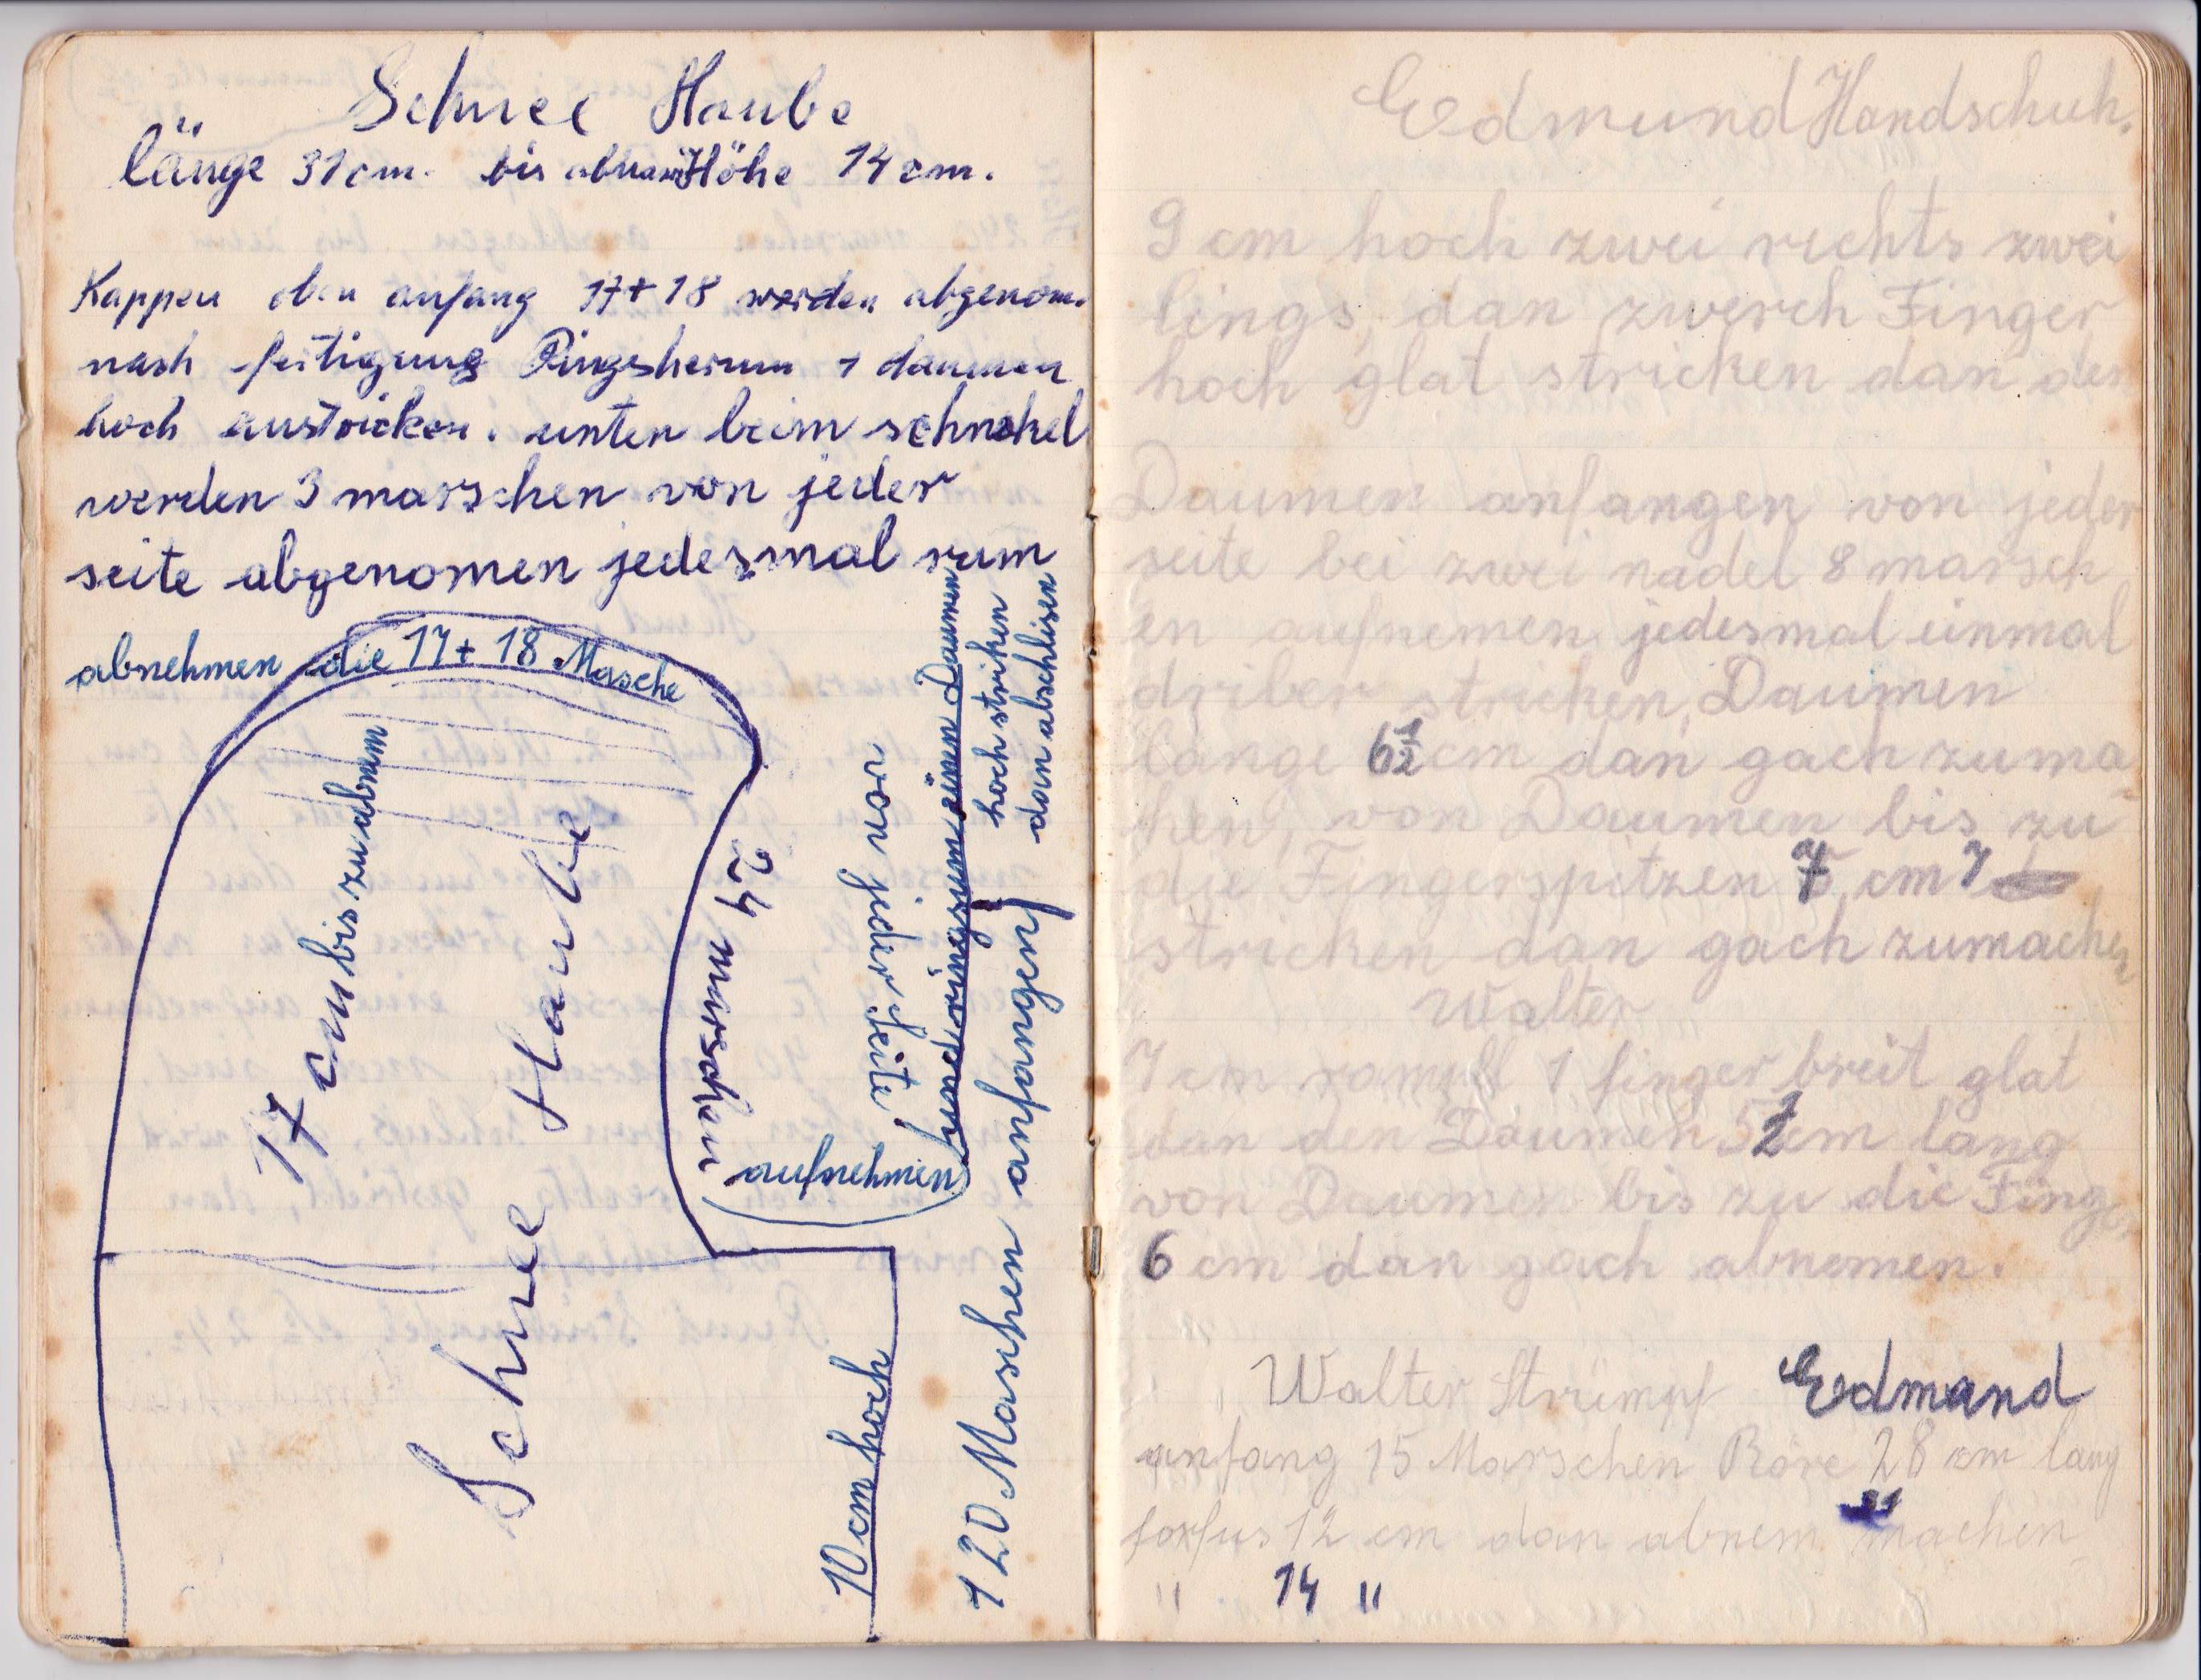 Schnee Haube
länge 31 cm. bis Höhe 14 cm.
Kappen oben anfang 17 + 18 werden abgenom.
nach fertigung Ringsherum 1 daumen
hoch anstricken. unten beim schnabel
werden 3 marschen von jeder
seite abgenomen jedesmal rum
abnehmen die 17 + 18 Masche
17 cm bis zu abnam
Schnee Haube
24 marschen
aufnehmen
von jeder seite
einen Daumen
hoch striken
dan abschlisen
10 cm hoch
120 Maschen anfangen
Edmund Handschuh.
9 cm hoch zwei rechts zwei
lings, dan zwerch Finger
hoch glat stricken dan den
Daumen anfangen von jeder
seite bei zwei nadel 8 marsch
en aufnemen jedesmal einmal
driber stricken, Daumen
länge 6 1/2 cm dan gach zuma
chen, von Daumen bis zu
die Fingerspitzen 7 cm 7
stricken dan gach zumachen
Walter
7 cm 1 finger breit glat
dan den Daumen 5 1/2 cm lang
von Daumen bis zu die Finger
6 cm dan gach abnemen.
Walter Strümpf Edmand
anfang 15 Marschen Röre 28 cm lang
31
forfus 12 cm dan abnem machen
" 14 "